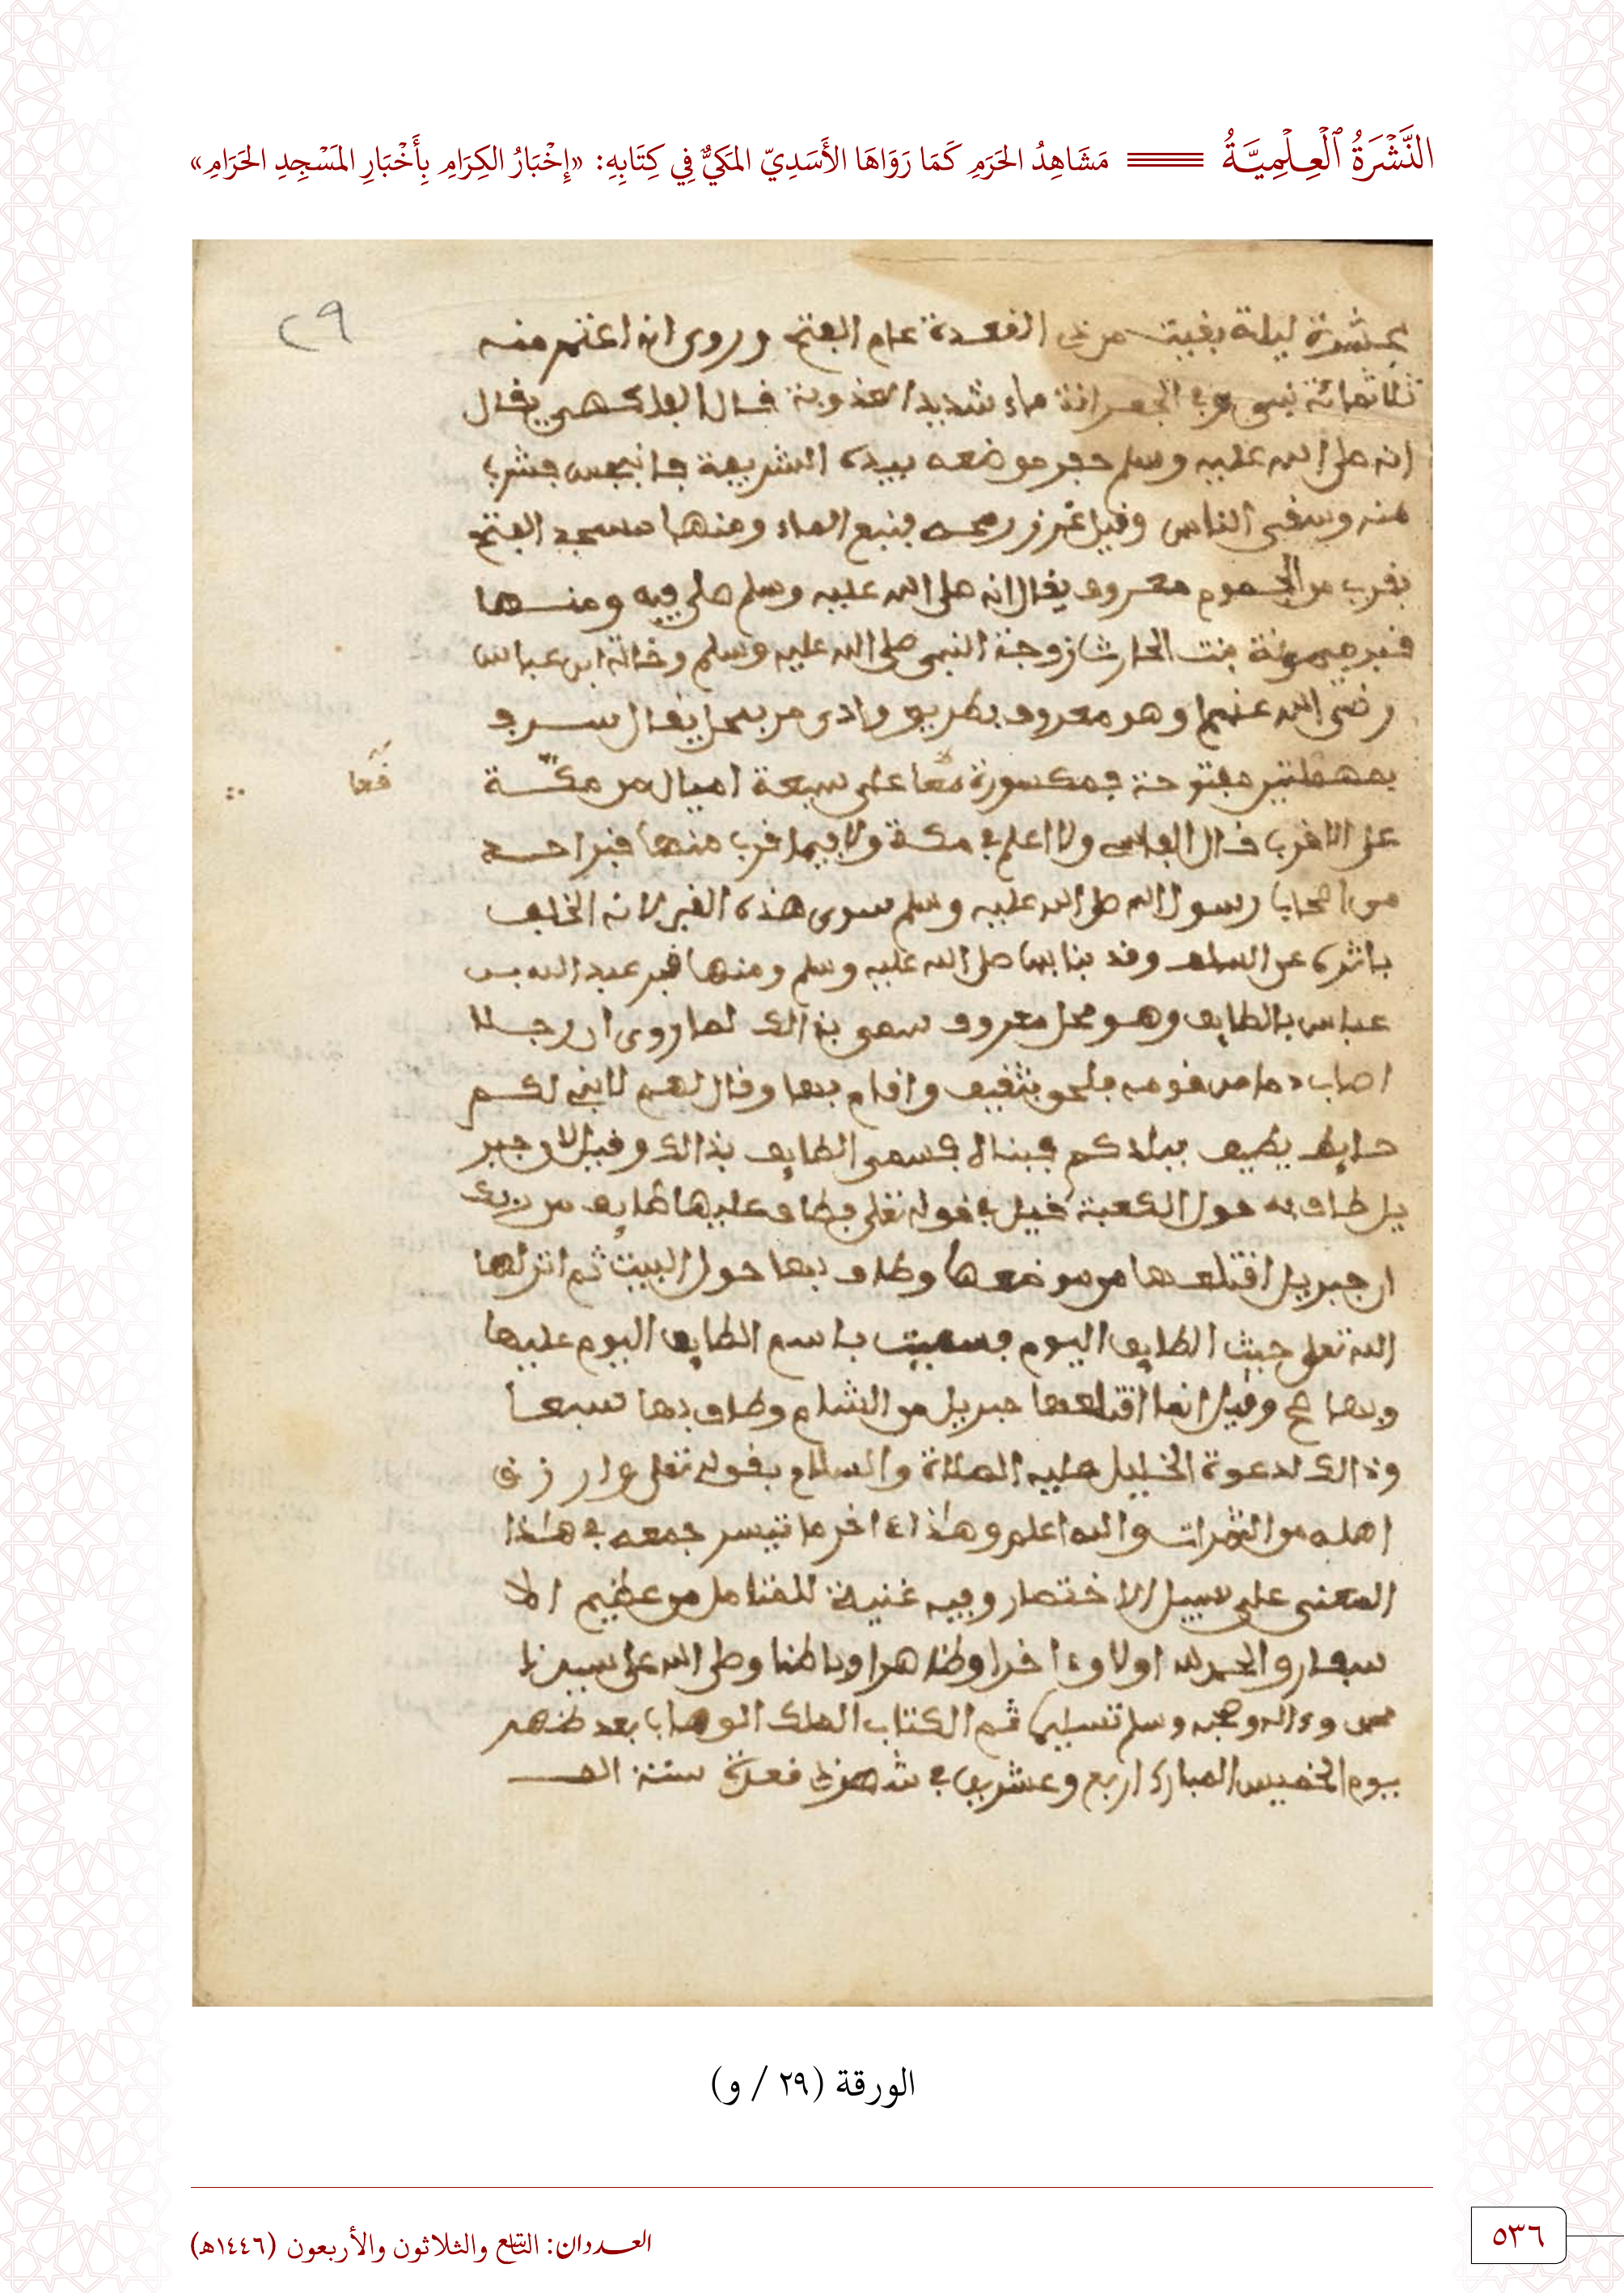 النَّشْرَةُ ٱلْعِلْمِيَّةُ مَشَاهِدُ الحَرَمِ كَمَا رَوَاهَا الأَسَدِيّ المَكيُّ فِي كِتَابِهِ: «إِخْبَارُ الكِرَامِ بِأَخْبَارِ المَسْجِدِ الحَرَامِ»
٢٩
عشرة ليلة بقيت من ذي القعدة عام الفتح وروى انه اعتمر منه
ثلاثمائة نبي وفي الجعرانة ماء شديد العذوبة قال الفاكهي يقال
انه صلى الله عليه وسلم حفر موضعه بيده الشريفة فانبجس فشرب
منه وسقى الناس وقيل غرز رمحه فنبع الماء ومنها مسجد الفتح
بقرب من الجموم معروف يقال انه صلى الله عليه وسلم صلى فيه ومنها
قبر ميمونة بنت الحارث زوجة النبي صلى الله عليه وسلم وخالة ابن عباس
رضى الله عنهما وهو معروف بطريق وادى مر بمحل يقال سرف
بمهملتين مفتوحة فمكسورة ففا على سبعة اميال من مكة
ففا
على الاقرب قال الفاسى ولا اعلم في مكة ولا فيما قرب منها قبر احد
من اصحاب رسول الله صلى الله عليه وسلم سوى هذه القبر لانه الخلف
ياثره عن السلف وقد بنا بها صلى الله عليه وسلم ومنها قبر عبد الله بن
عباس بالطايف وهو محل معروف سمي بذالك لما روى ان رجلا
اصاب دما من قومه فلحق بثقيف واقام بها وقال لهم لابني لكم
حايط يطيف ببلادكم فبناه فسمى الطايف بذالك وقيل لان جبر
يل طاف به حول الكعبة قيل في قوله تعلى فطاف عليها طايف من ربك
ان جبريل اقتلعها من موضعها وطاف بها حول البيت ثم انزلها
الله تعلى حيث الطايف اليوم فسميت باسم الطايف اليوم عليها
وبها وقيل انما اقتلعها جبريل من الشام وطاف بها سبعا
وذالك لدعوة الخليل عليه الصلاة والسلام بقوله تعلى وارزق
اهله من الثمرات والله اعلم وهذا ءاخر ما تيسر جمعه في هذا
المعنى على سبيل الاختصار وفيه غنية للمتامل من عظيم الا
سفار والحمد لله اولا وءاخرا وظاهرا وباطنا وصلى الله على سيدنا
محمد وءاله وصحبه وسلم تسليما تم الكتاب الملك الوهاب بعد ظهر
يوم الخميس المبارك اربع وعشرين في شهر ذي قعدة سنة الف
الورقة (٢٩ / و)
العددان: التاسع والثلاثون والأربعون (١٤٤٦هـ)
٥٣٦